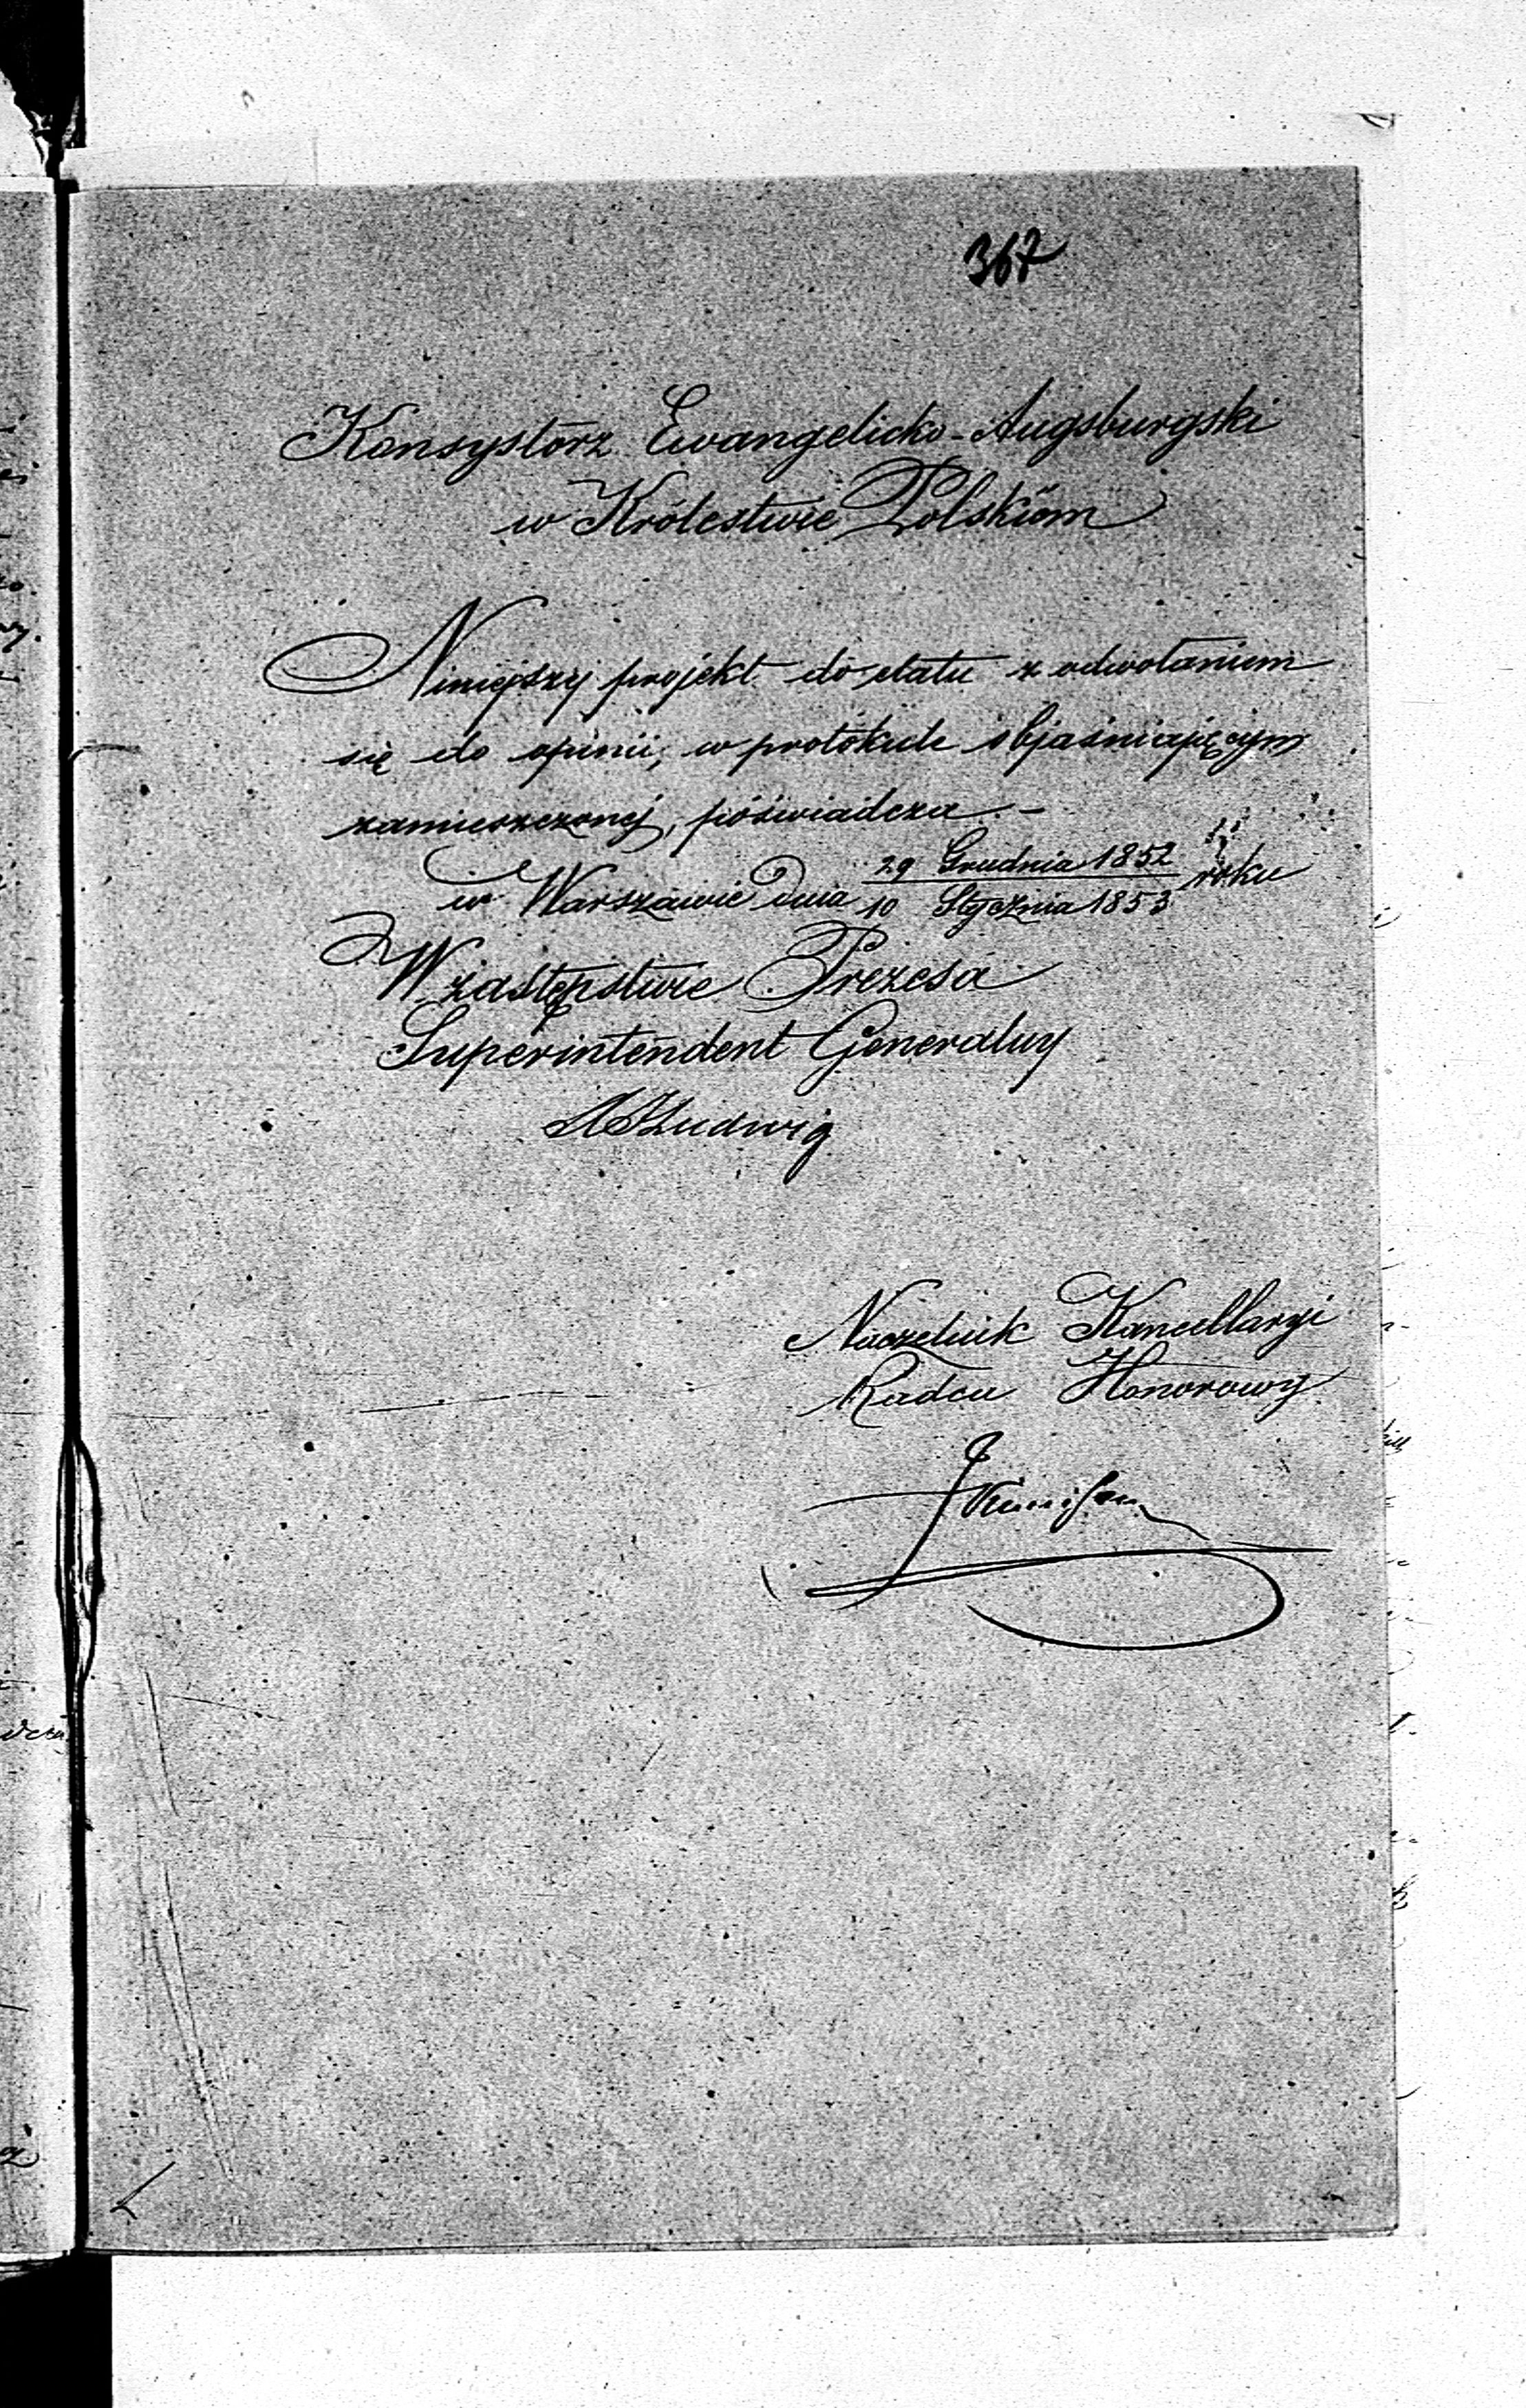 367
Konsystorz Ewangelicko-Augsburgski
w Królestwie Polskiém
Niniejszy projekt do etatu z odwołaniem
się do opinii, w protokule objaśniającym
zamieszczonej, poświadcza. –
w Warszawie dnia 29 Grudnia 1852 / 10 Stycznia 1853 roku
W zastępstwie Prezesa
Superintendent Generalny
Ludwig
Naczelnik Kancellaryi
Radca Honorowy